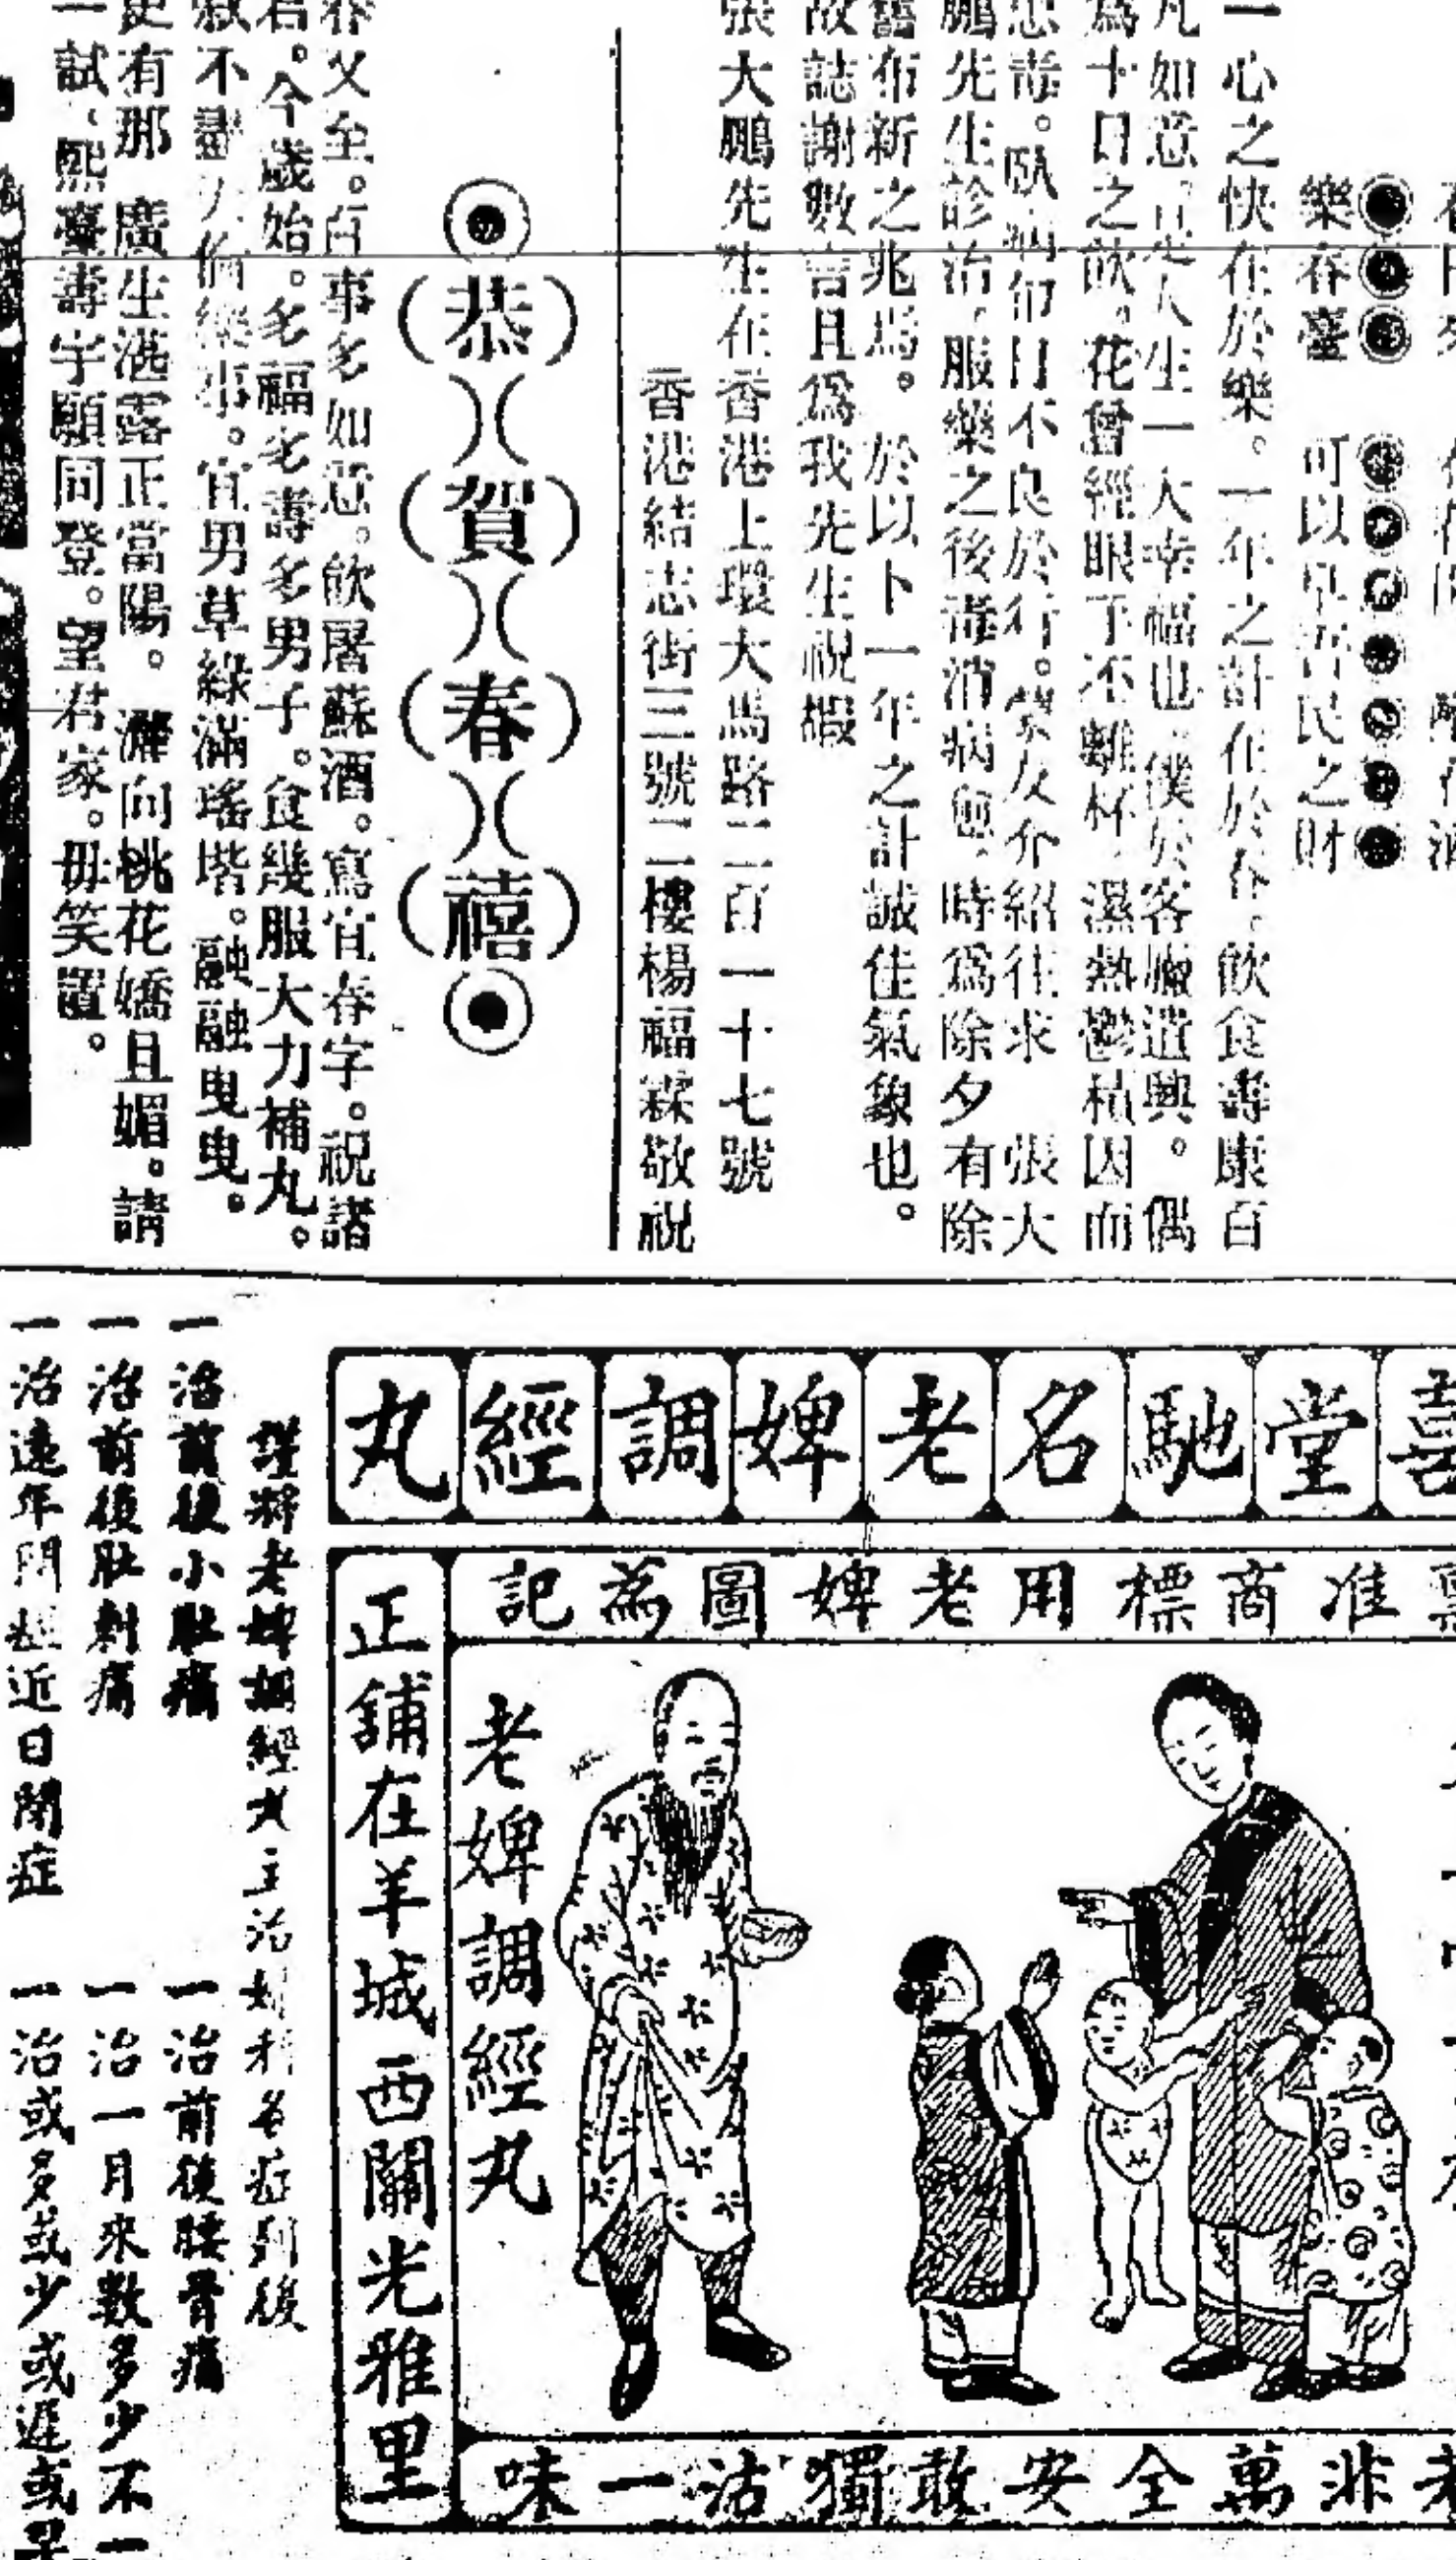 樂春臺 可以阜吾民之財
一心之快在於樂。一年之計在於春。飲食壽康百
凡如意 人生一大幸福也 僕於客臘遣興。偶
為十日之飲。花曾經眼 不離杯 濕熱鬱積因而
毒。臥病 日不良於行。蒙友介紹往求 張大
鵬先生診治。服藥之後毒消病愈。時為除夕有除
舊布新之兆焉。於以卜一年之計誠佳氣象也。
故誌謝數言且為我先生祝嘏
張大鵬先生在香港上環大馬路二百一十七號
香港結志街三號二樓楊福霖敬祝
恭賀春禧
春又至。百事多如意。飲屠蘇酒。寫宜春字。祝諸
君。今歲始。多福多壽多男子。食幾服大力補丸。
敘不盡 倫樂事。宜男草綠滿瑤堦。融融曳曳。
更有那 廣生 露正當陽。 灑向桃花嬌且媚。請
一試、熙臺壽宇願同登。望君家。毋笑置。
喜堂馳名老婢調經丸
准商標用老婢圖為記
老婢調經丸
正舖在羊城西關光雅里
非萬全安敢獨沽一味
謹將老婢調經丸主治婦科各症列後
一治前後小肚痛 一治前後腰骨痛
一治前後肚刺痛 一治一月來數多少不一
一治遠年閉經近日閉症 一治或多或少或遲或早